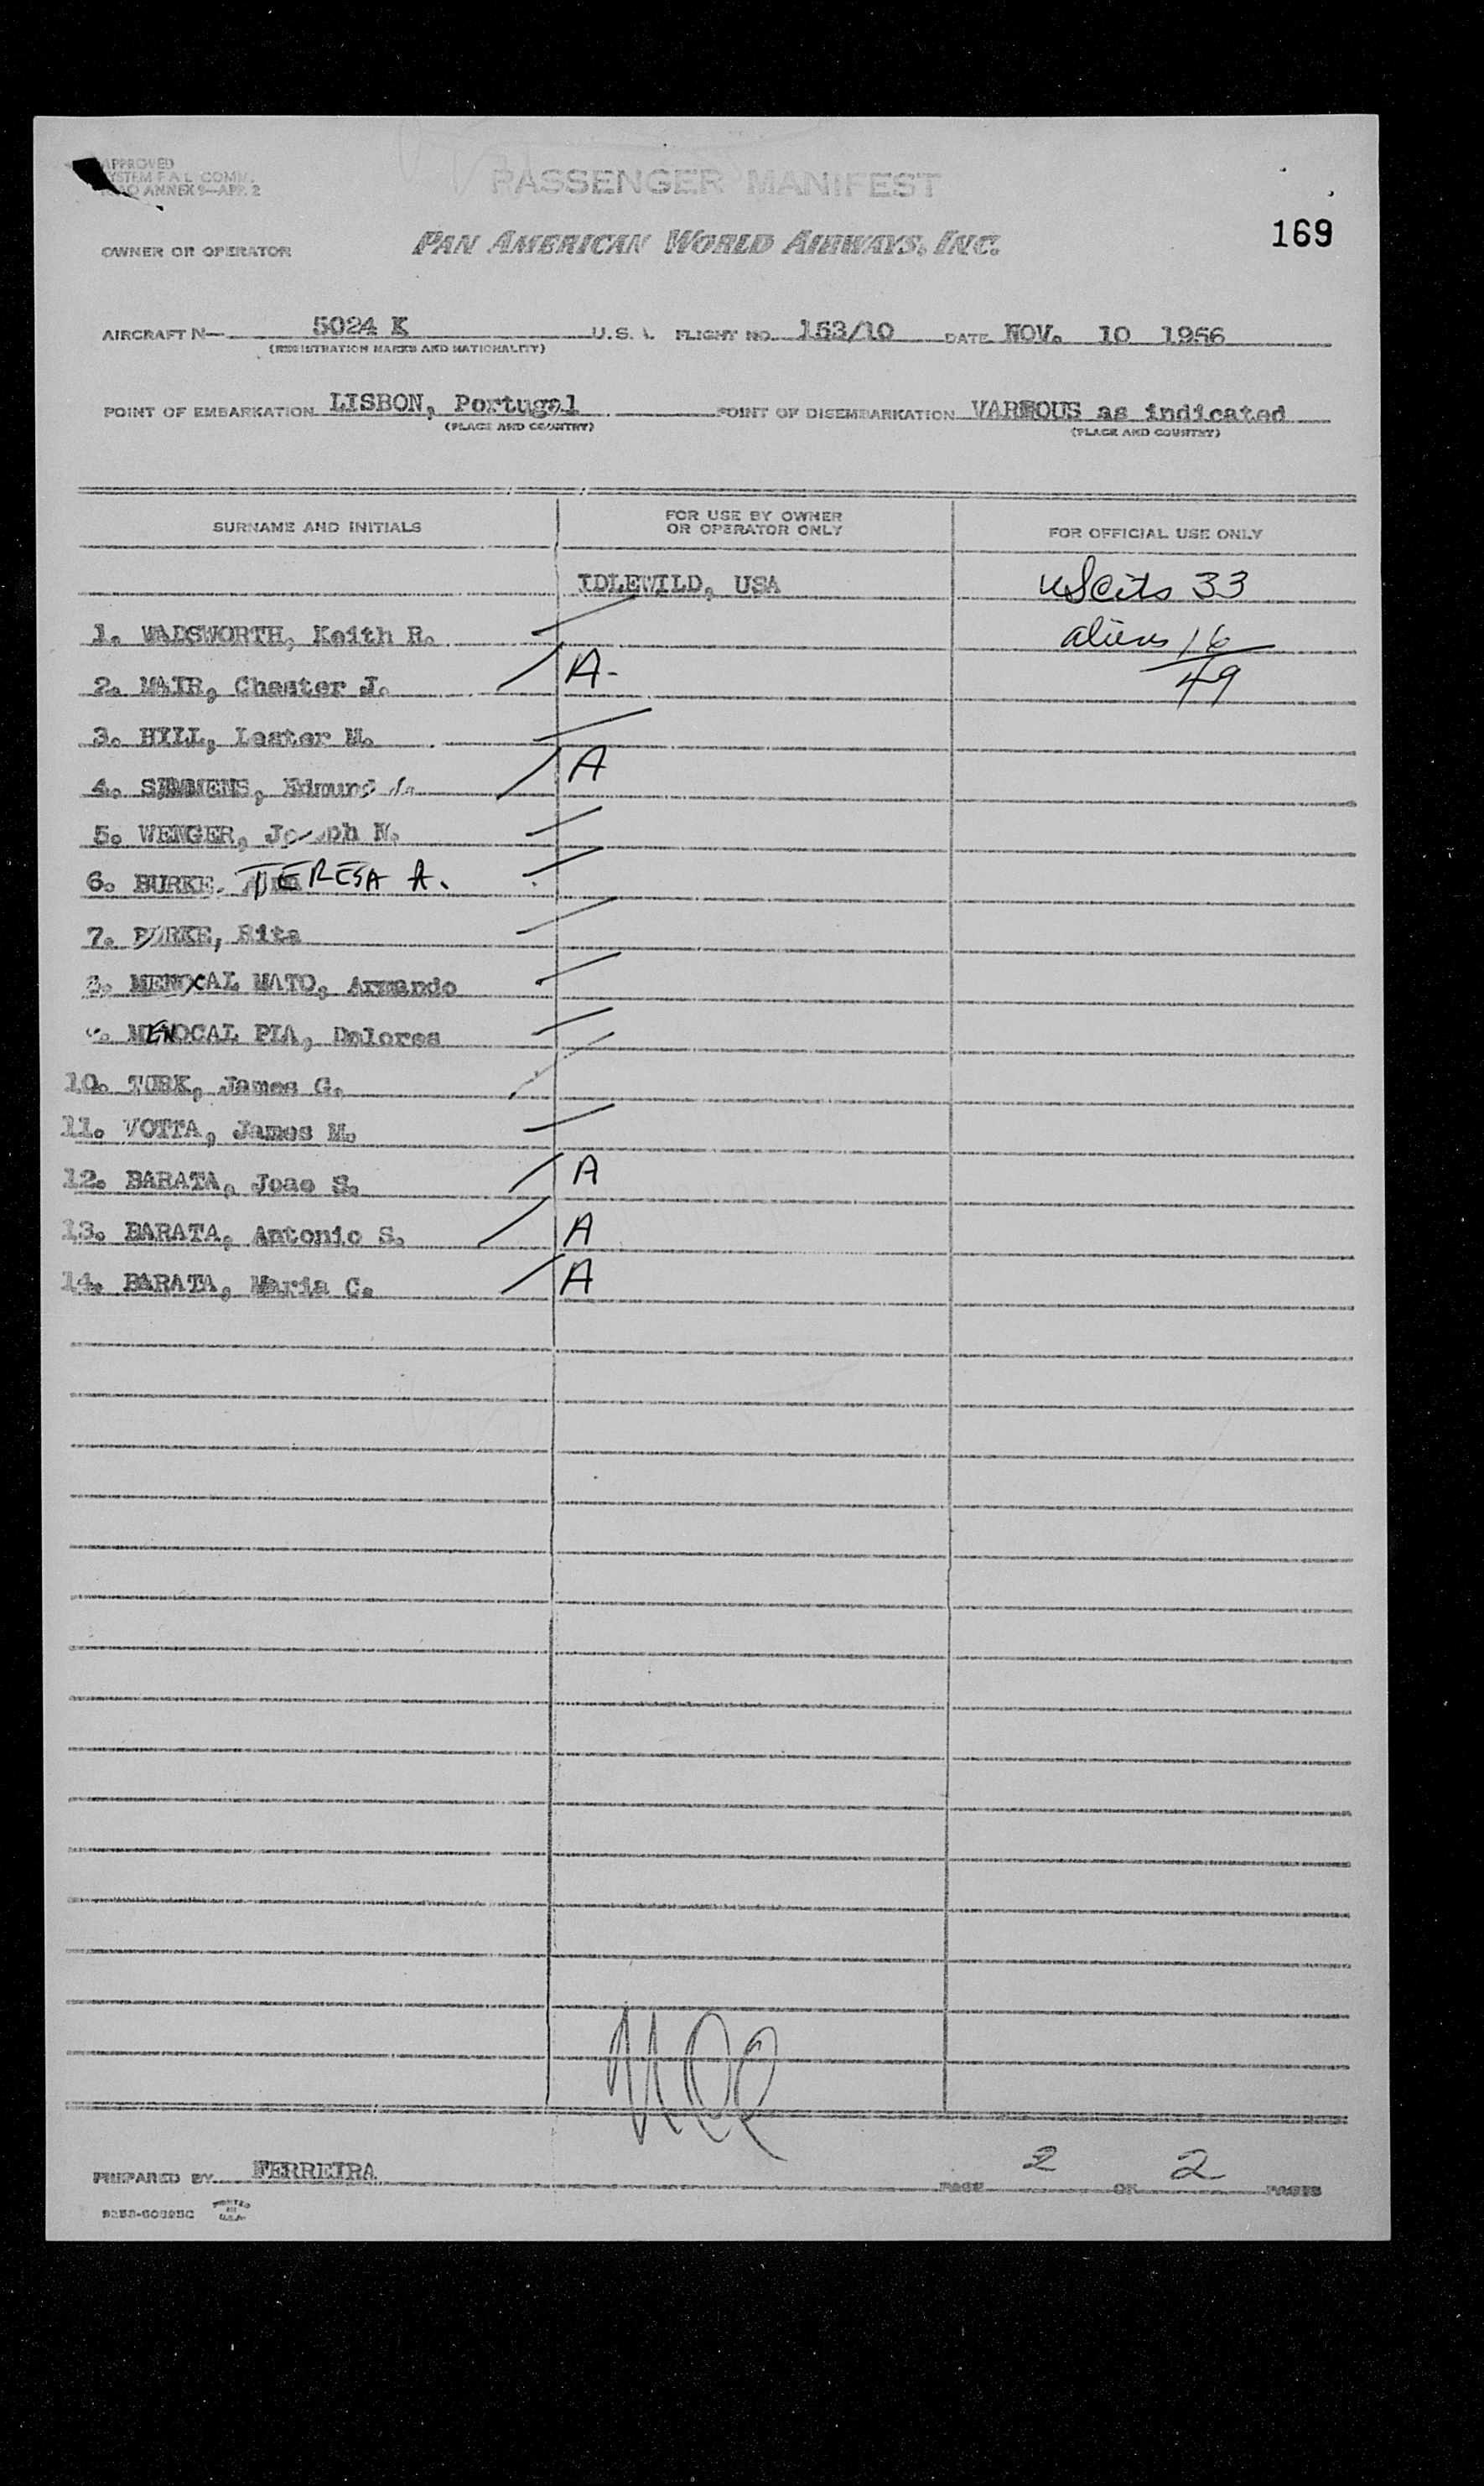 APPROVED
SYSTEM F A L COMM.
ICAO ANNEX 9—APP. 2
PASSENGER MANIFEST
169
OWNER OR OPERATOR PAN AMERICAN WORLD AIRWAYS, INC.
AIRCRAFT N— 5024 K U.S.A. FLIGHT NO. 153/10 DATE NOV. 10 1956
(REGISTRATION MARKS AND NATIONALITY)
POINT OF EMBARKATION LISBON, Portugal POINT OF DISEMBARKATION VARIOUS as indicated
(PLACE AND COUNTRY) (PLACE AND COUNTRY)
SURNAME AND INITIALS FOR USE BY OWNER OR OPERATOR ONLY FOR OFFICIAL USE ONLY
IDLEWILD, USA US cits 33
1. WADSWORTH, Keith R. aliens 16
2. MAIR, Chester J. A- 49
3. HILL, Lester M.
4. SIMMENS, Edmund J. A
5. WENGER, Joseph N.
6. BURKE, TERESA A.
7. BURKE, Rita
8. MENOCAL MATO, Armando
9. MENOCAL PIA, Dolores
10. TURK, James G.
11. VOTTA, James M.
12. BARATA, Joao S. A
13. BARATA, Antonio S. A
14. BARATA, Maria C. A
PREPARED BY FERREIRA PAGE 2 OF 2 PAGES
PRINTED IN U.S.A.